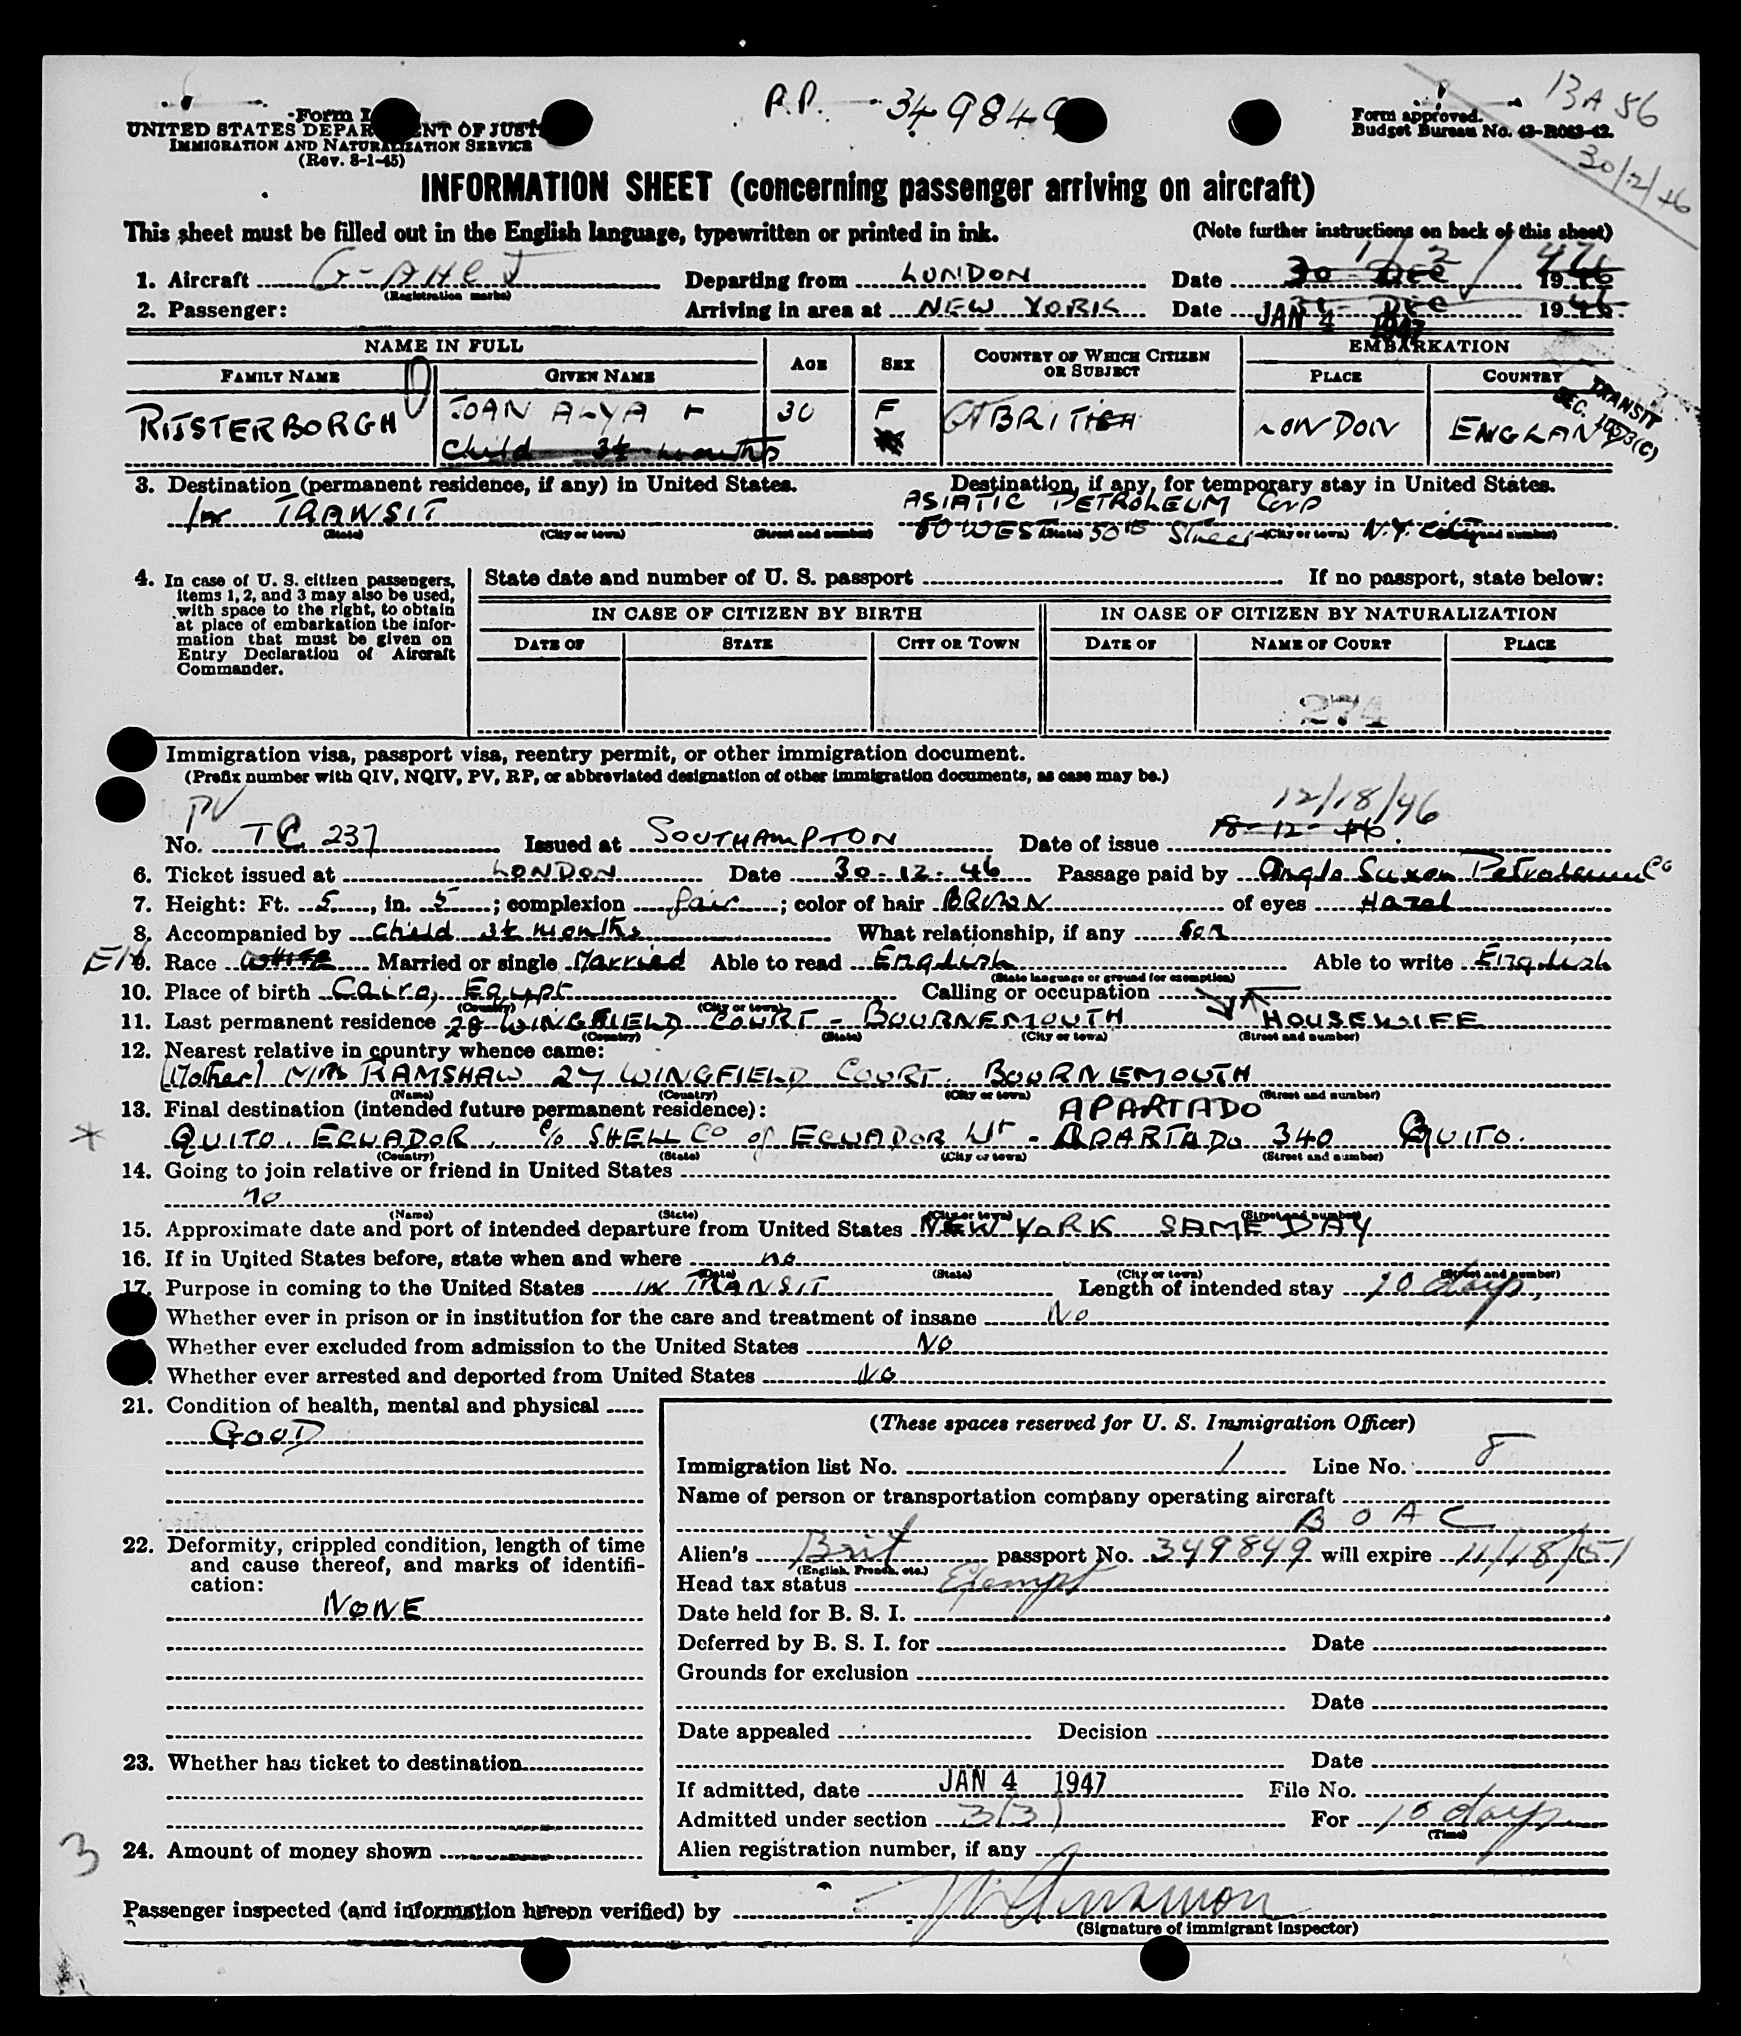 P.P. 349849
13A 56
Form I
UNITED STATES DEPARTMENT OF JUSTICE
IMMIGRATION AND NATURALIZATION SERVICE
(Rev. 8-1-45)
Form approved.
Budget Bureau No. 43-R083-42.
INFORMATION SHEET (concerning passenger arriving on aircraft)
This sheet must be filled out in the English language, typewritten or printed in ink. (Note further instructions on back of this sheet)
1. Aircraft G-AHCJ Departing from LONDON Date 30 DEC 1946
(Registration marks)
2. Passenger: Arriving in area at NEW YORK Date JAN 4 1947 1946
NAME IN FULL AGE SEX COUNTRY OF WHICH CITIZEN OR SUBJECT EMBARKATION
FAMILY NAME GIVEN NAME PLACE COUNTRY
TRANSIT SEC. 1033(C)
RIJSTERBORGH JOAN ALYA + 30 F BRITISH LONDON ENGLAND
Child 3½ months
3. Destination (permanent residence, if any) in United States. Destination, if any, for temporary stay in United States.
In TRANSIT ASIATIC PETROLEUM Corp
50 WEST 50th Street N.Y. City
(State) (City or town) (Street and number) (State) (City or town) (Street and number)
4. In case of U. S. citizen passengers, items 1, 2, and 3 may also be used, with space to the right, to obtain at place of embarkation the information that must be given on Entry Declaration of Aircraft Commander.
State date and number of U. S. passport If no passport, state below:
IN CASE OF CITIZEN BY BIRTH IN CASE OF CITIZEN BY NATURALIZATION
DATE OF STATE CITY OR TOWN DATE OF NAME OF COURT PLACE
274
Immigration visa, passport visa, reentry permit, or other immigration document.
(Prefix number with QIV, NQIV, PV, RP, or abbreviated designation of other immigration documents, as case may be.)
PV 12/18/46
No. TC 237 Issued at SOUTHAMPTON Date of issue 18-12-46.
6. Ticket issued at LONDON Date 30.12.46 Passage paid by Anglo Saxon Petroleum Co
7. Height: Ft. 5, in. 5; complexion fair; color of hair BROWN of eyes Hazel
8. Accompanied by Child 3½ months What relationship, if any Son
9. Race White Married or single Married Able to read English Able to write English
(State language or ground for exemption)
10. Place of birth Cairo, Egypt Calling or occupation
(Country) (City or town)
11. Last permanent residence 28 WINGFIELD COURT - BOURNEMOUTH HOUSEWIFE
(Country) (State) (City or town) (Street and number)
12. Nearest relative in country whence came:
(Mother) Mrs RAMSHAW 27 WINGFIELD COURT. BOURNEMOUTH
(Name) (Country) (City or town) (Street and number)
13. Final destination (intended future permanent residence): APARTADO
QUITO, ECUADOR, c/o SHELL Co of ECUADOR Ltd - APARTADO 340 QUITO.
(Country) (State) (City or town) (Street and number)
14. Going to join relative or friend in United States
no
(Name) (State) (City or town) (Street and number)
15. Approximate date and port of intended departure from United States NEW YORK SAME DAY
16. If in United States before, state when and where no
(Date) (State) (City or town) (Street and number)
17. Purpose in coming to the United States IN TRANSIT Length of intended stay 10 days,
Whether ever in prison or in institution for the care and treatment of insane No
Whether ever excluded from admission to the United States NO
Whether ever arrested and deported from United States NO
21. Condition of health, mental and physical
GOOD
22. Deformity, crippled condition, length of time
and cause thereof, and marks of identifi-
cation:
NONE
23. Whether has ticket to destination
3 24. Amount of money shown
(These spaces reserved for U. S. Immigration Officer)
Immigration list No. 1 Line No. 8
Name of person or transportation company operating aircraft
B O A C
Alien's Brit passport No. 349849 will expire 11/18/51
(English, French, etc.)
Head tax status Exempt
Date held for B. S. I.
Deferred by B. S. I. for Date
Grounds for exclusion
Date
Date appealed Decision
Date
If admitted, date JAN 4 1947 File No.
Admitted under section 3(3) For 10 days
(Time)
Alien registration number, if any
Passenger inspected (and information hereon verified) by
(Signature of immigrant inspector)